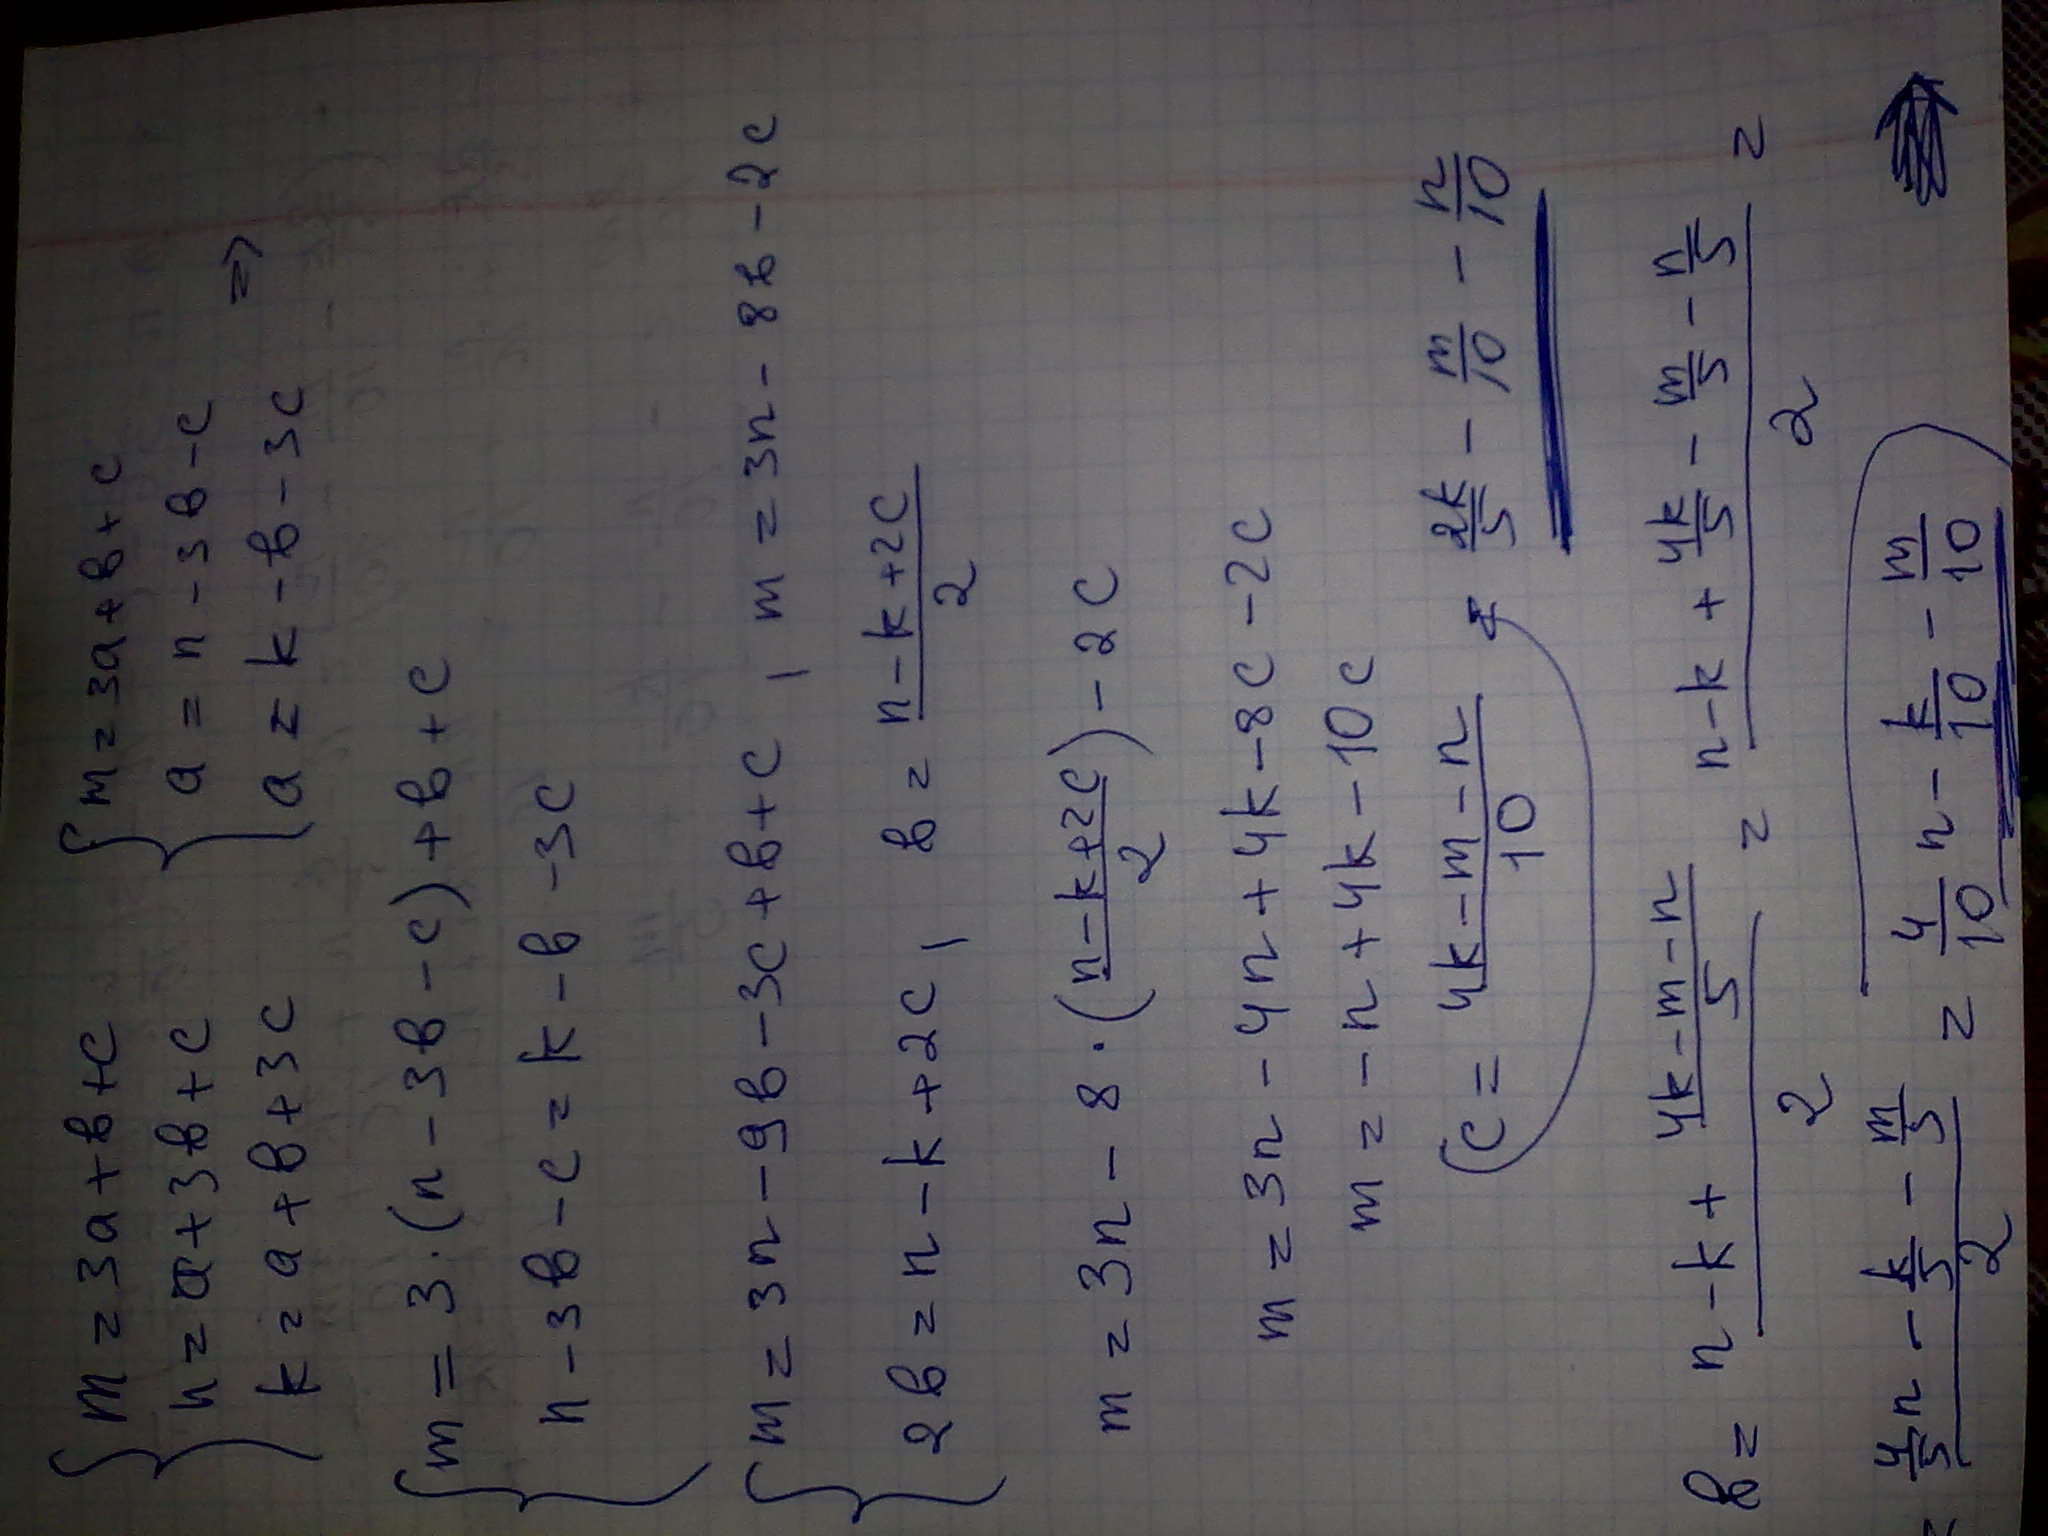 { m = 3a + b + c    { m = 3a + b + c
n = a + 3b + c    a = n - 3b - c    =>
k = a + b + 3c    a = k - b - 3c
{ m = 3·(n - 3b - c) + b + c
n - 3b - c = k - b - 3c
{ m = 3n - 9b - 3c + b + c , m = 3n - 8b - 2c
2b = n - k + 2c , b = (n - k + 2c)/2
m = 3n - 8·((n - k + 2c)/2) - 2c
m = 3n - 4n + 4k - 8c - 2c
m = -n + 4k - 10c
c = (4k - m - n)/10    2k/5 - m/10 - n/10
b = (n - k + (4k - m - n)/5)/2 = (n - k + 4k/5 - m/5 - n/5)/2 =
= (4/5 n - k/5 - m/5)/2 = 4/10 n - k/10 - m/10